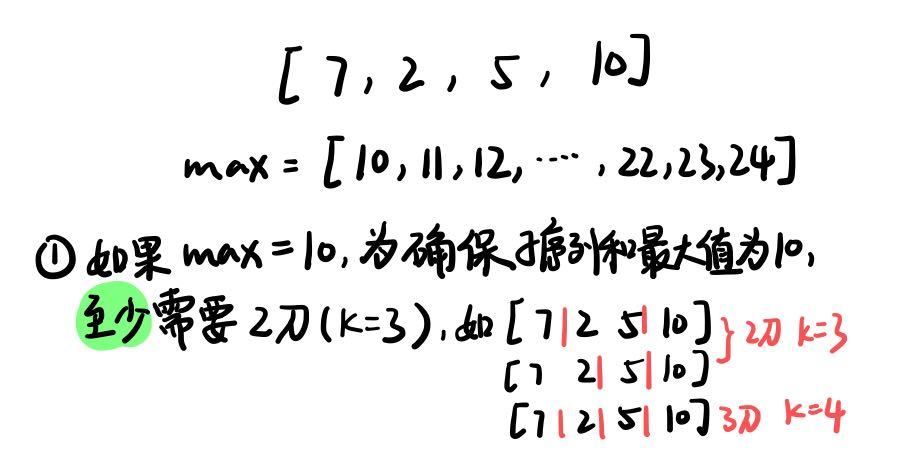 [ 7, 2, 5, 10]
max = [10, 11, 12, ····, 22, 23, 24]
① 如果 max = 10, 为确保子序列和最大值为10,
至少需要 2刀 (K=3), 如 [ 7 | 2 5 | 10] } 2刀 K=3
[ 7 2 | 5 | 10]
[ 7 | 2 | 5 | 10] 3刀 K=4